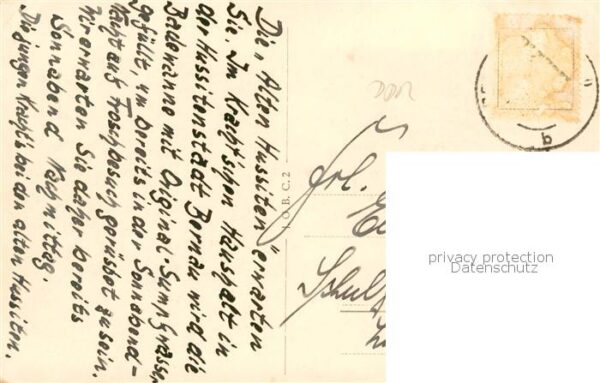 Die „Alten Hussiten" erwarten
Sie. Im Krachtschen Haushalt in
der Hussitenstadt Bernau wird die
Badewanne mit Original-Sumpfwasser
gefüllt, um bereits in der Sonnabend-
Nacht auf Froschbesuch gerüstet zu sein.
Wir erwarten Sie daher bereits
Sonnabend Nachmittag.
Die jungen Krachts bei den alten Hussiten.
J.O.B.C.2
Frl.
privacy protection
Datenschutz